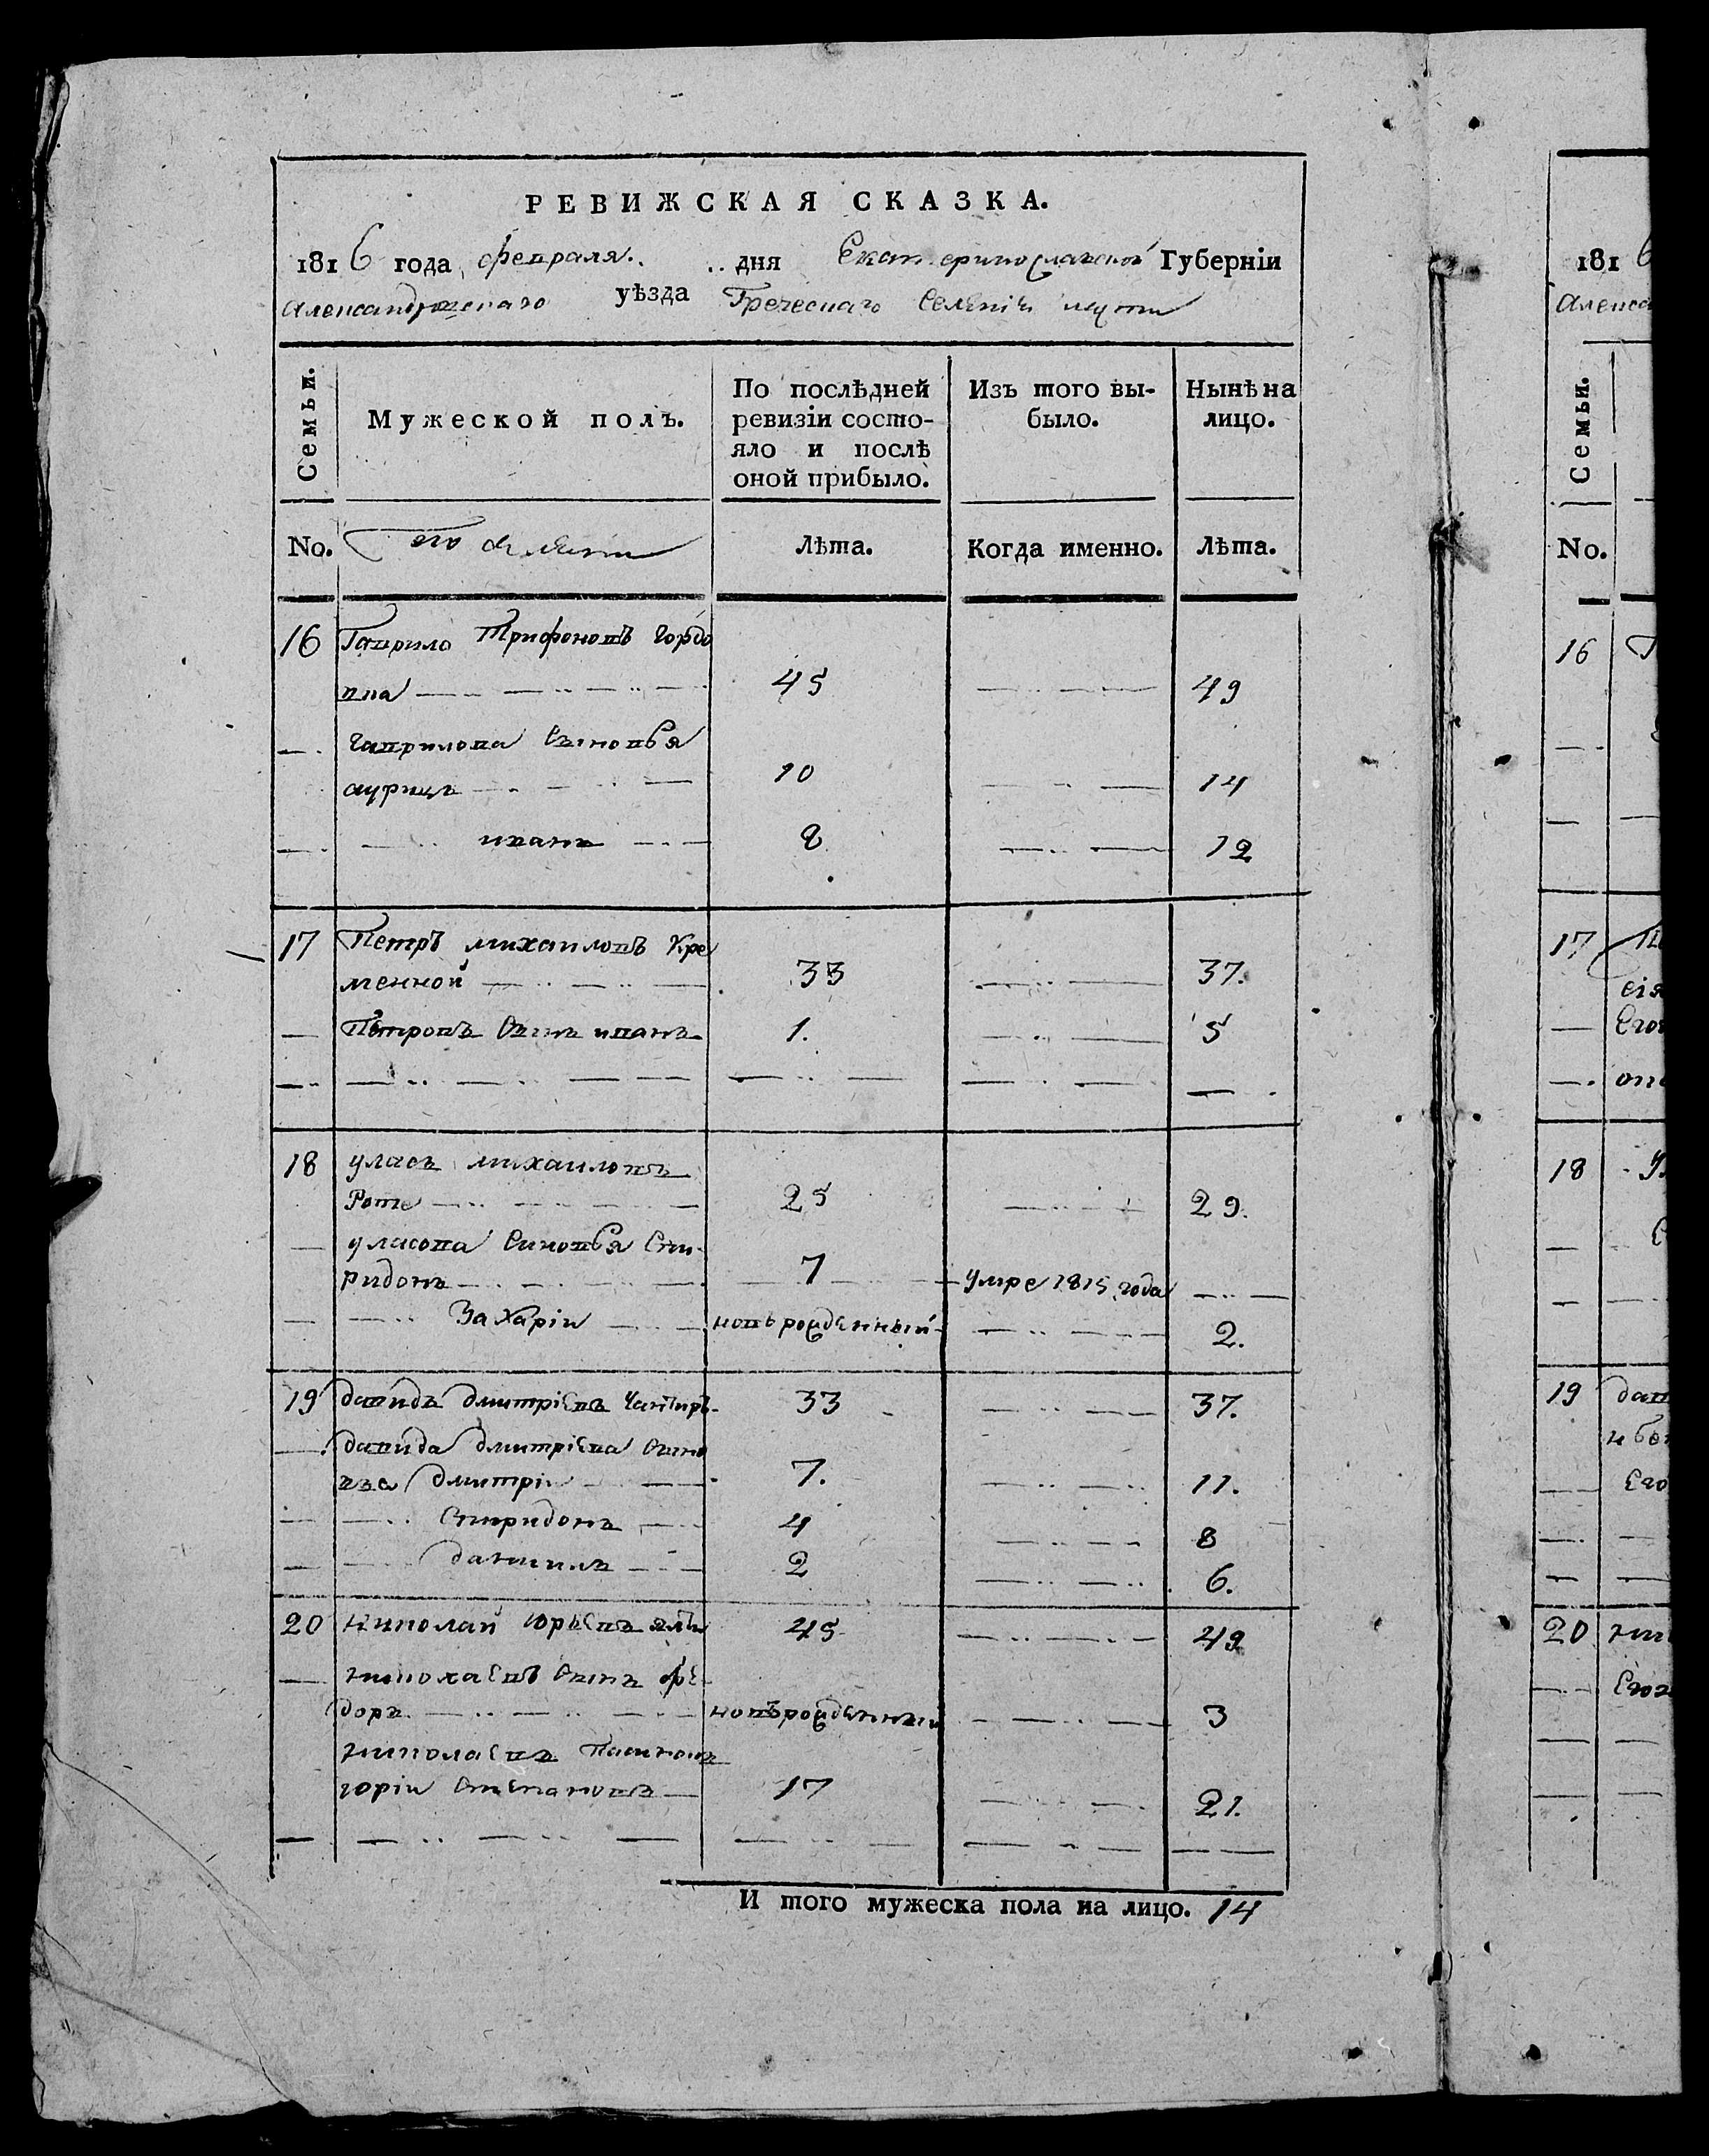 РЕВИЖСКАЯ СКАЗКА.
1816 года февраля .. дня Екатеринославской Губерніи
Александровскаго уѣзда Греческаго Селенія
Семьи.
Мужеской полъ.
По послѣдней
ревизіи состо-
яло и послѣ
оной прибыло.
Изъ того вы-
было.
Нынѣ на
лицо.
No.
Лѣта.
Когда именно.
Лѣта.
16 Гаврило Трифоновъ Гордо
вла 45 49
Гаврилова Сыновья
аурицъ 10 14
иванъ 8 12
17 Петръ михаиловъ Кре
менной 33 37.
Петровъ Сынъ иванъ 1. 5
18 уласъ михаиловъ
Роте 25 29.
уласова Синовья Спи-
ридонъ 7 умре 1815 года
Захаріи новърожденный 2.
19 давидъ дмитріевъ 33 37.
давида дмитріева Сыно
вья дмитріи 7. 11.
Спиридонъ 4 8
данилъ 2 6.
20 николай юрьевъ 45 49
николаевъ Сынъ фе-
доръ новърожденный 3
николаевъ Пасинокъ
горіи Степановъ 17 21.
И того мужеска пола на лицо. 14
1816
Алекса
Семьи.
No.
16
17
Сія
Его
18
19 дав
Его
20 ни
Его